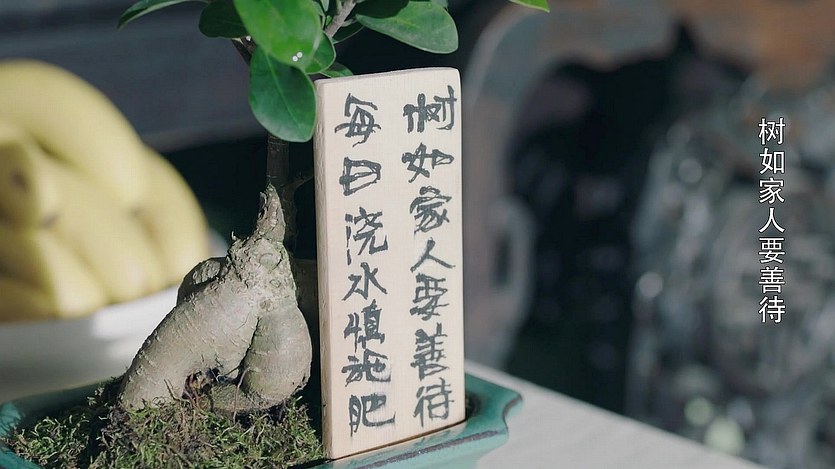 树如家人要善待
每日浇水慎施肥
树如家人要善待